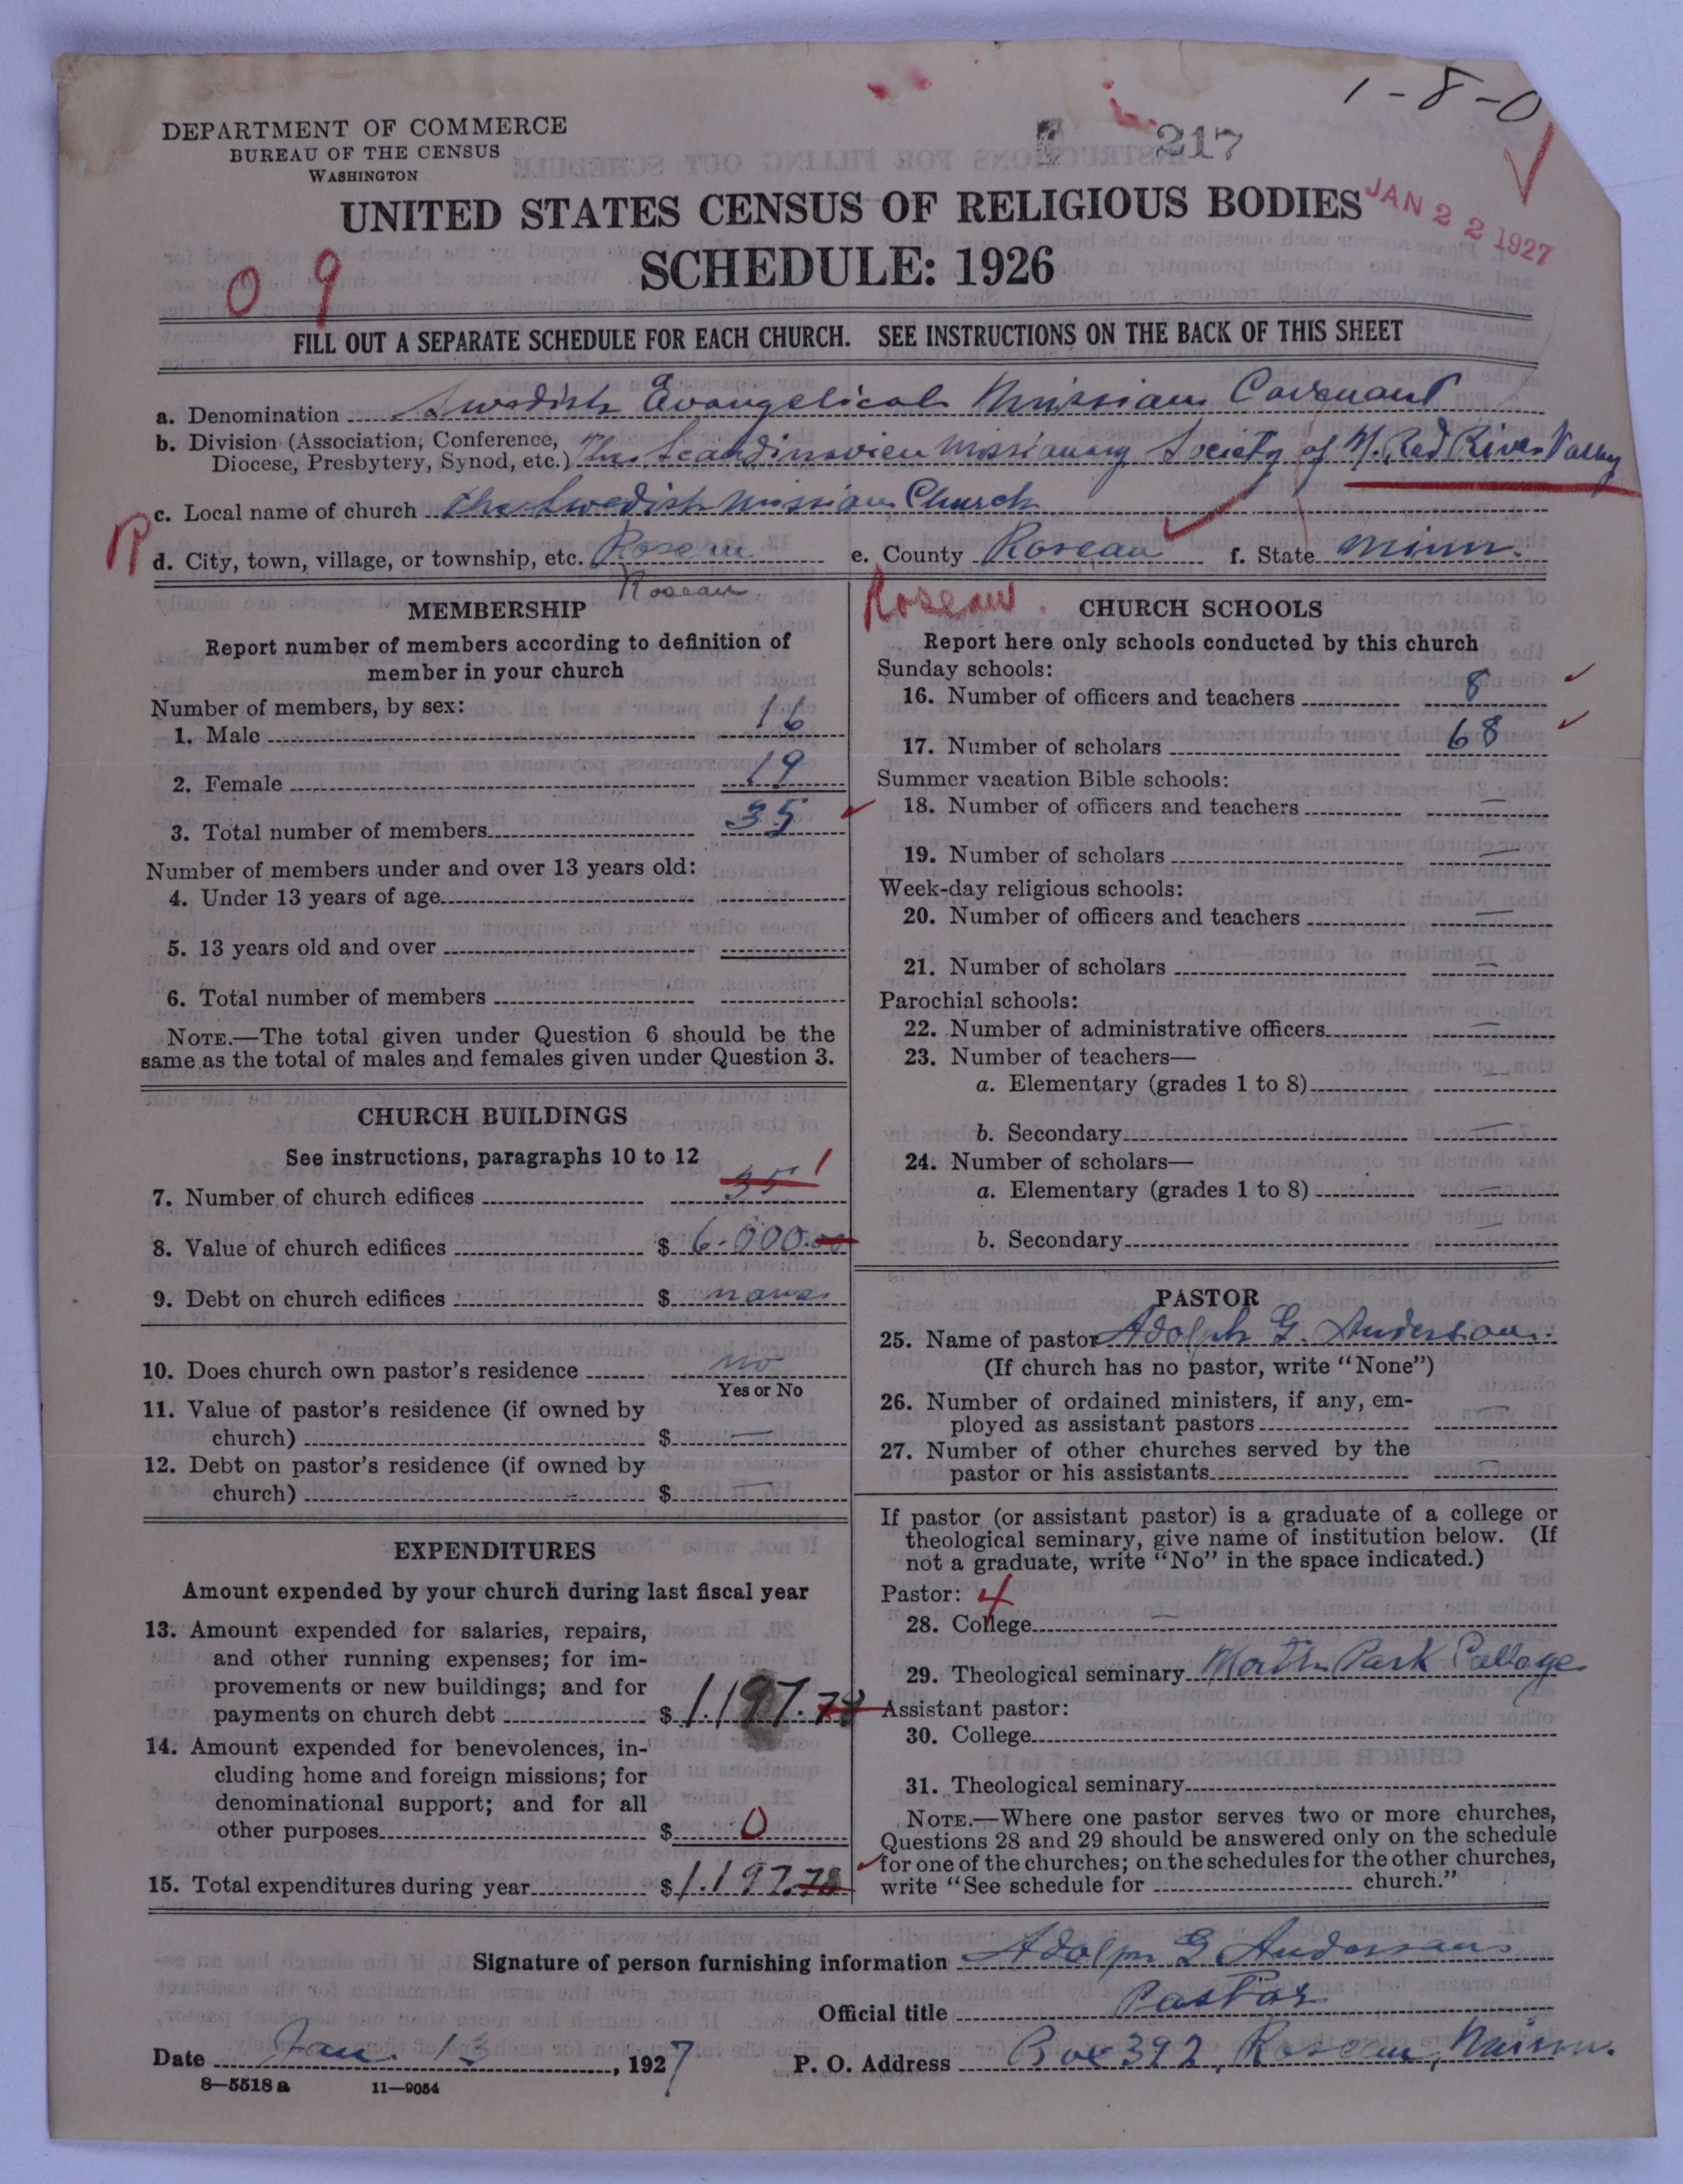 1-8-0
DEPARTMENT OF COMMERCE
BUREAU OF THE CENSUS
WASHINGTON
217
UNITED STATES CENSUS OF RELIGIOUS BODIES
JAN 22 1927
SCHEDULE: 1926
0 9
FILL OUT A SEPARATE SCHEDULE FOR EACH CHURCH. SEE INSTRUCTIONS ON THE BACK OF THIS SHEET
a. Denomination Swedish Evangelical Mission Covenant
b. Division (Association, Conference, Diocese, Presbytery, Synod, etc.) The Scandinavien Missionary Society of N. Red River Valley
c. Local name of church The Swedish Mission Church
d. City, town, village, or township, etc. Roseau e. County Roseau f. State Minn.
Roseau
Roseau.
MEMBERSHIP
Report number of members according to definition of
member in your church
Number of members, by sex:
1. Male 16
2. Female 19
3. Total number of members 35
Number of members under and over 13 years old:
4. Under 13 years of age
5. 13 years old and over
6. Total number of members
NOTE.—The total given under Question 6 should be the
same as the total of males and females given under Question 3.
CHURCH BUILDINGS
See instructions, paragraphs 10 to 12
7. Number of church edifices 35 1
8. Value of church edifices $ 6.000.00
9. Debt on church edifices $ none
10. Does church own pastor's residence no
Yes or No
11. Value of pastor's residence (if owned by
church) $ —
12. Debt on pastor's residence (if owned by
church) $ —
EXPENDITURES
Amount expended by your church during last fiscal year
13. Amount expended for salaries, repairs,
and other running expenses; for im-
provements or new buildings; and for
payments on church debt $ 1.197.78
14. Amount expended for benevolences, in-
cluding home and foreign missions; for
denominational support; and for all
other purposes $ 0
15. Total expenditures during year $ 1.197.78
CHURCH SCHOOLS
Report here only schools conducted by this church
Sunday schools:
16. Number of officers and teachers 8
17. Number of scholars 68
Summer vacation Bible schools:
18. Number of officers and teachers —
19. Number of scholars —
Week-day religious schools:
20. Number of officers and teachers —
21. Number of scholars —
Parochial schools:
22. Number of administrative officers —
23. Number of teachers—
a. Elementary (grades 1 to 8) —
b. Secondary —
24. Number of scholars—
a. Elementary (grades 1 to 8) —
b. Secondary —
PASTOR
25. Name of pastor Adolph G. Anderson.
(If church has no pastor, write "None")
26. Number of ordained ministers, if any, em-
ployed as assistant pastors —
27. Number of other churches served by the
pastor or his assistants —
If pastor (or assistant pastor) is a graduate of a college or
theological seminary, give name of institution below. (If
not a graduate, write "No" in the space indicated.)
Pastor: 4
28. College —
29. Theological seminary North Park College
Assistant pastor:
30. College
31. Theological seminary
NOTE.—Where one pastor serves two or more churches,
Questions 28 and 29 should be answered only on the schedule
for one of the churches; on the schedules for the other churches,
write "See schedule for church."
Signature of person furnishing information Adolph G. Anderson
Official title Pastor
Date Jan. 13, 1927 P. O. Address Box 392, Roseau, Minn.
8-5518 a 11—9054